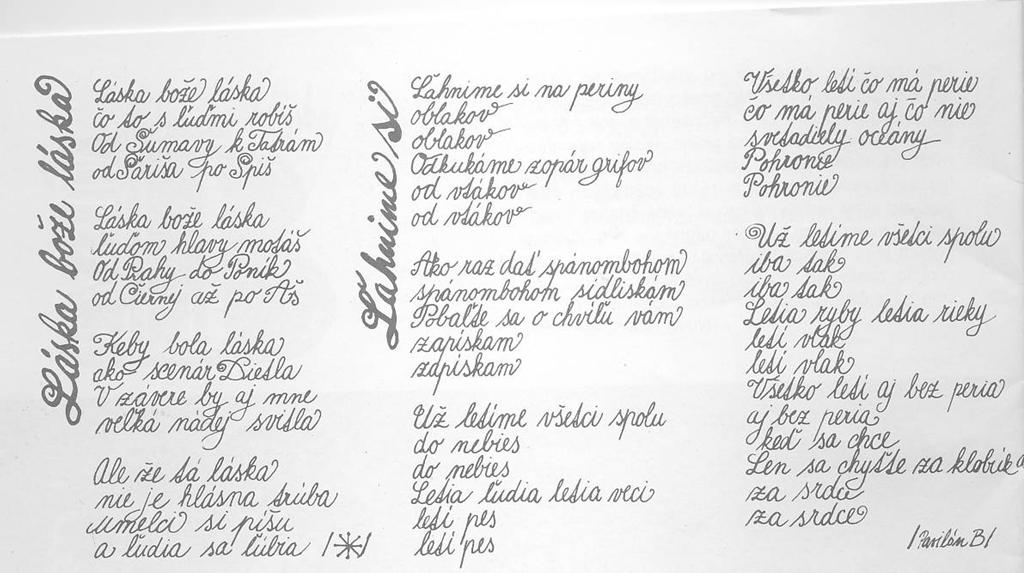 Láska bože láska
Láska bože láska
čo to s ľuďmi robíš
Od Šumavy k Tatrám
od Šariša po Spiš
Láska bože láska
ľuďom hlavy motáš
Od Prahy do Poník
od Čiernej až po Aš
Keby bola láska
ako scenár Dietla
V závere by aj mne
veľká nádej svitla
Ale že tá láska
nie je hlásna trúba
Umelci si píšu
a ľudia sa ľúbia /*/
Ľahnime si
Ľahnime si na periny
oblakov
oblakov
Odkukáme zopár grifov
od vtákov
od vtákov
Ako raz dať spánombohom
spánombohom sídliskám
Pobaľte sa o chvíľu vám
zapískam
zapískam
Už letíme všetci spolu
do nebies
do nebies
Letia ľudia letia veci
letí pes
letí pes
Všetko letí čo má perie
čo má perie aj čo nie
svetadiely oceány
Pohronie
Pohronie
Už letíme všetci spolu
iba tak
iba tak
Letia ryby letia rieky
letí vlak
letí vlak
Všetko letí aj bez peria
aj bez peria
keď sa chce
Len sa chyťte za klobúk a
za srdce
za srdce
/Pavilón B/